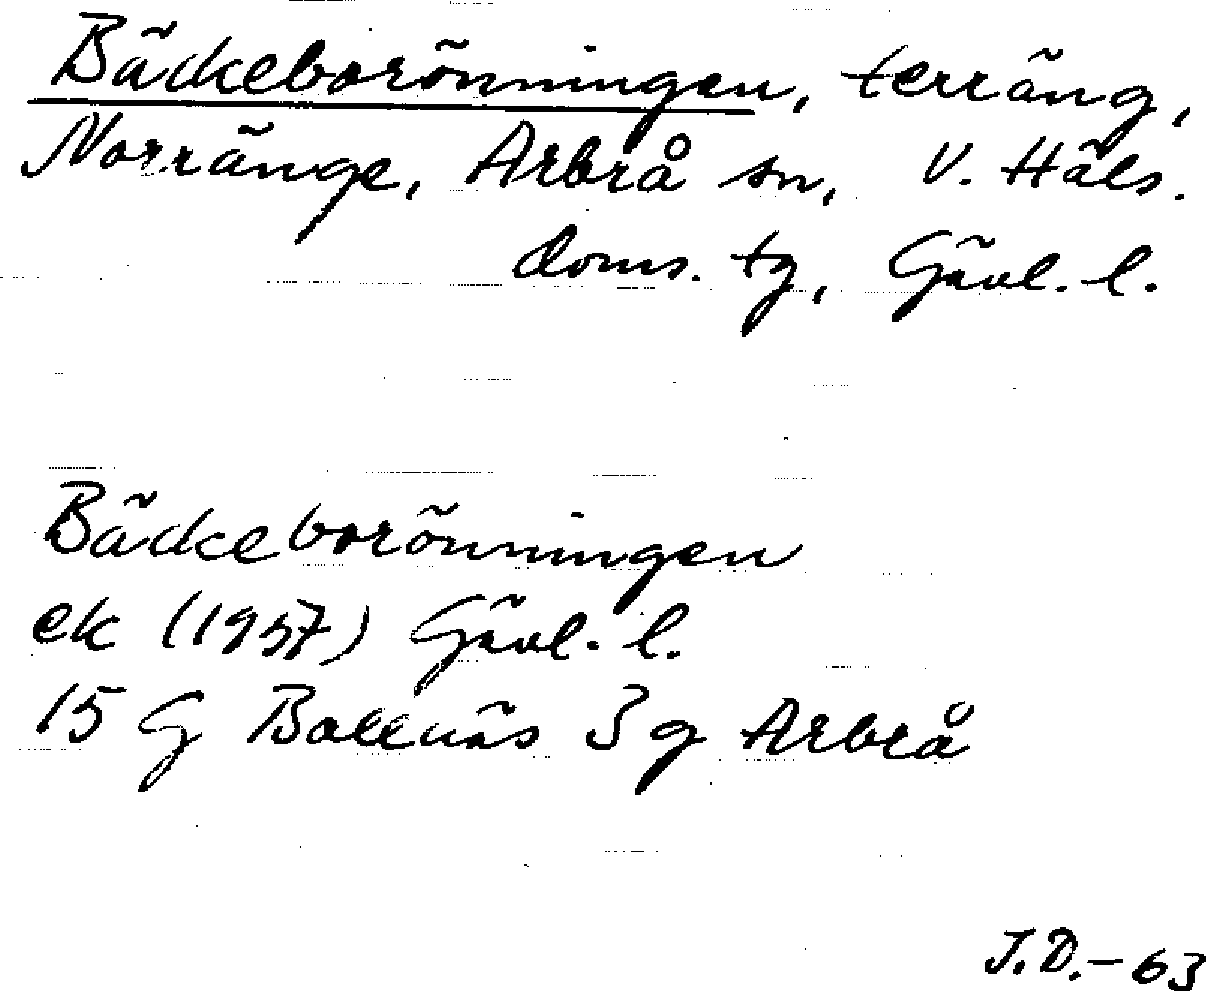 Bäckeborönningen, terräng,
Norränge, Arbrå sn, V. Häls.
doms. tg, Gävl. l.
Bäckeborönningen
ek (1957) Gävl. l.
15 G Bollnäs 3 g Arbrå
J.D.-63